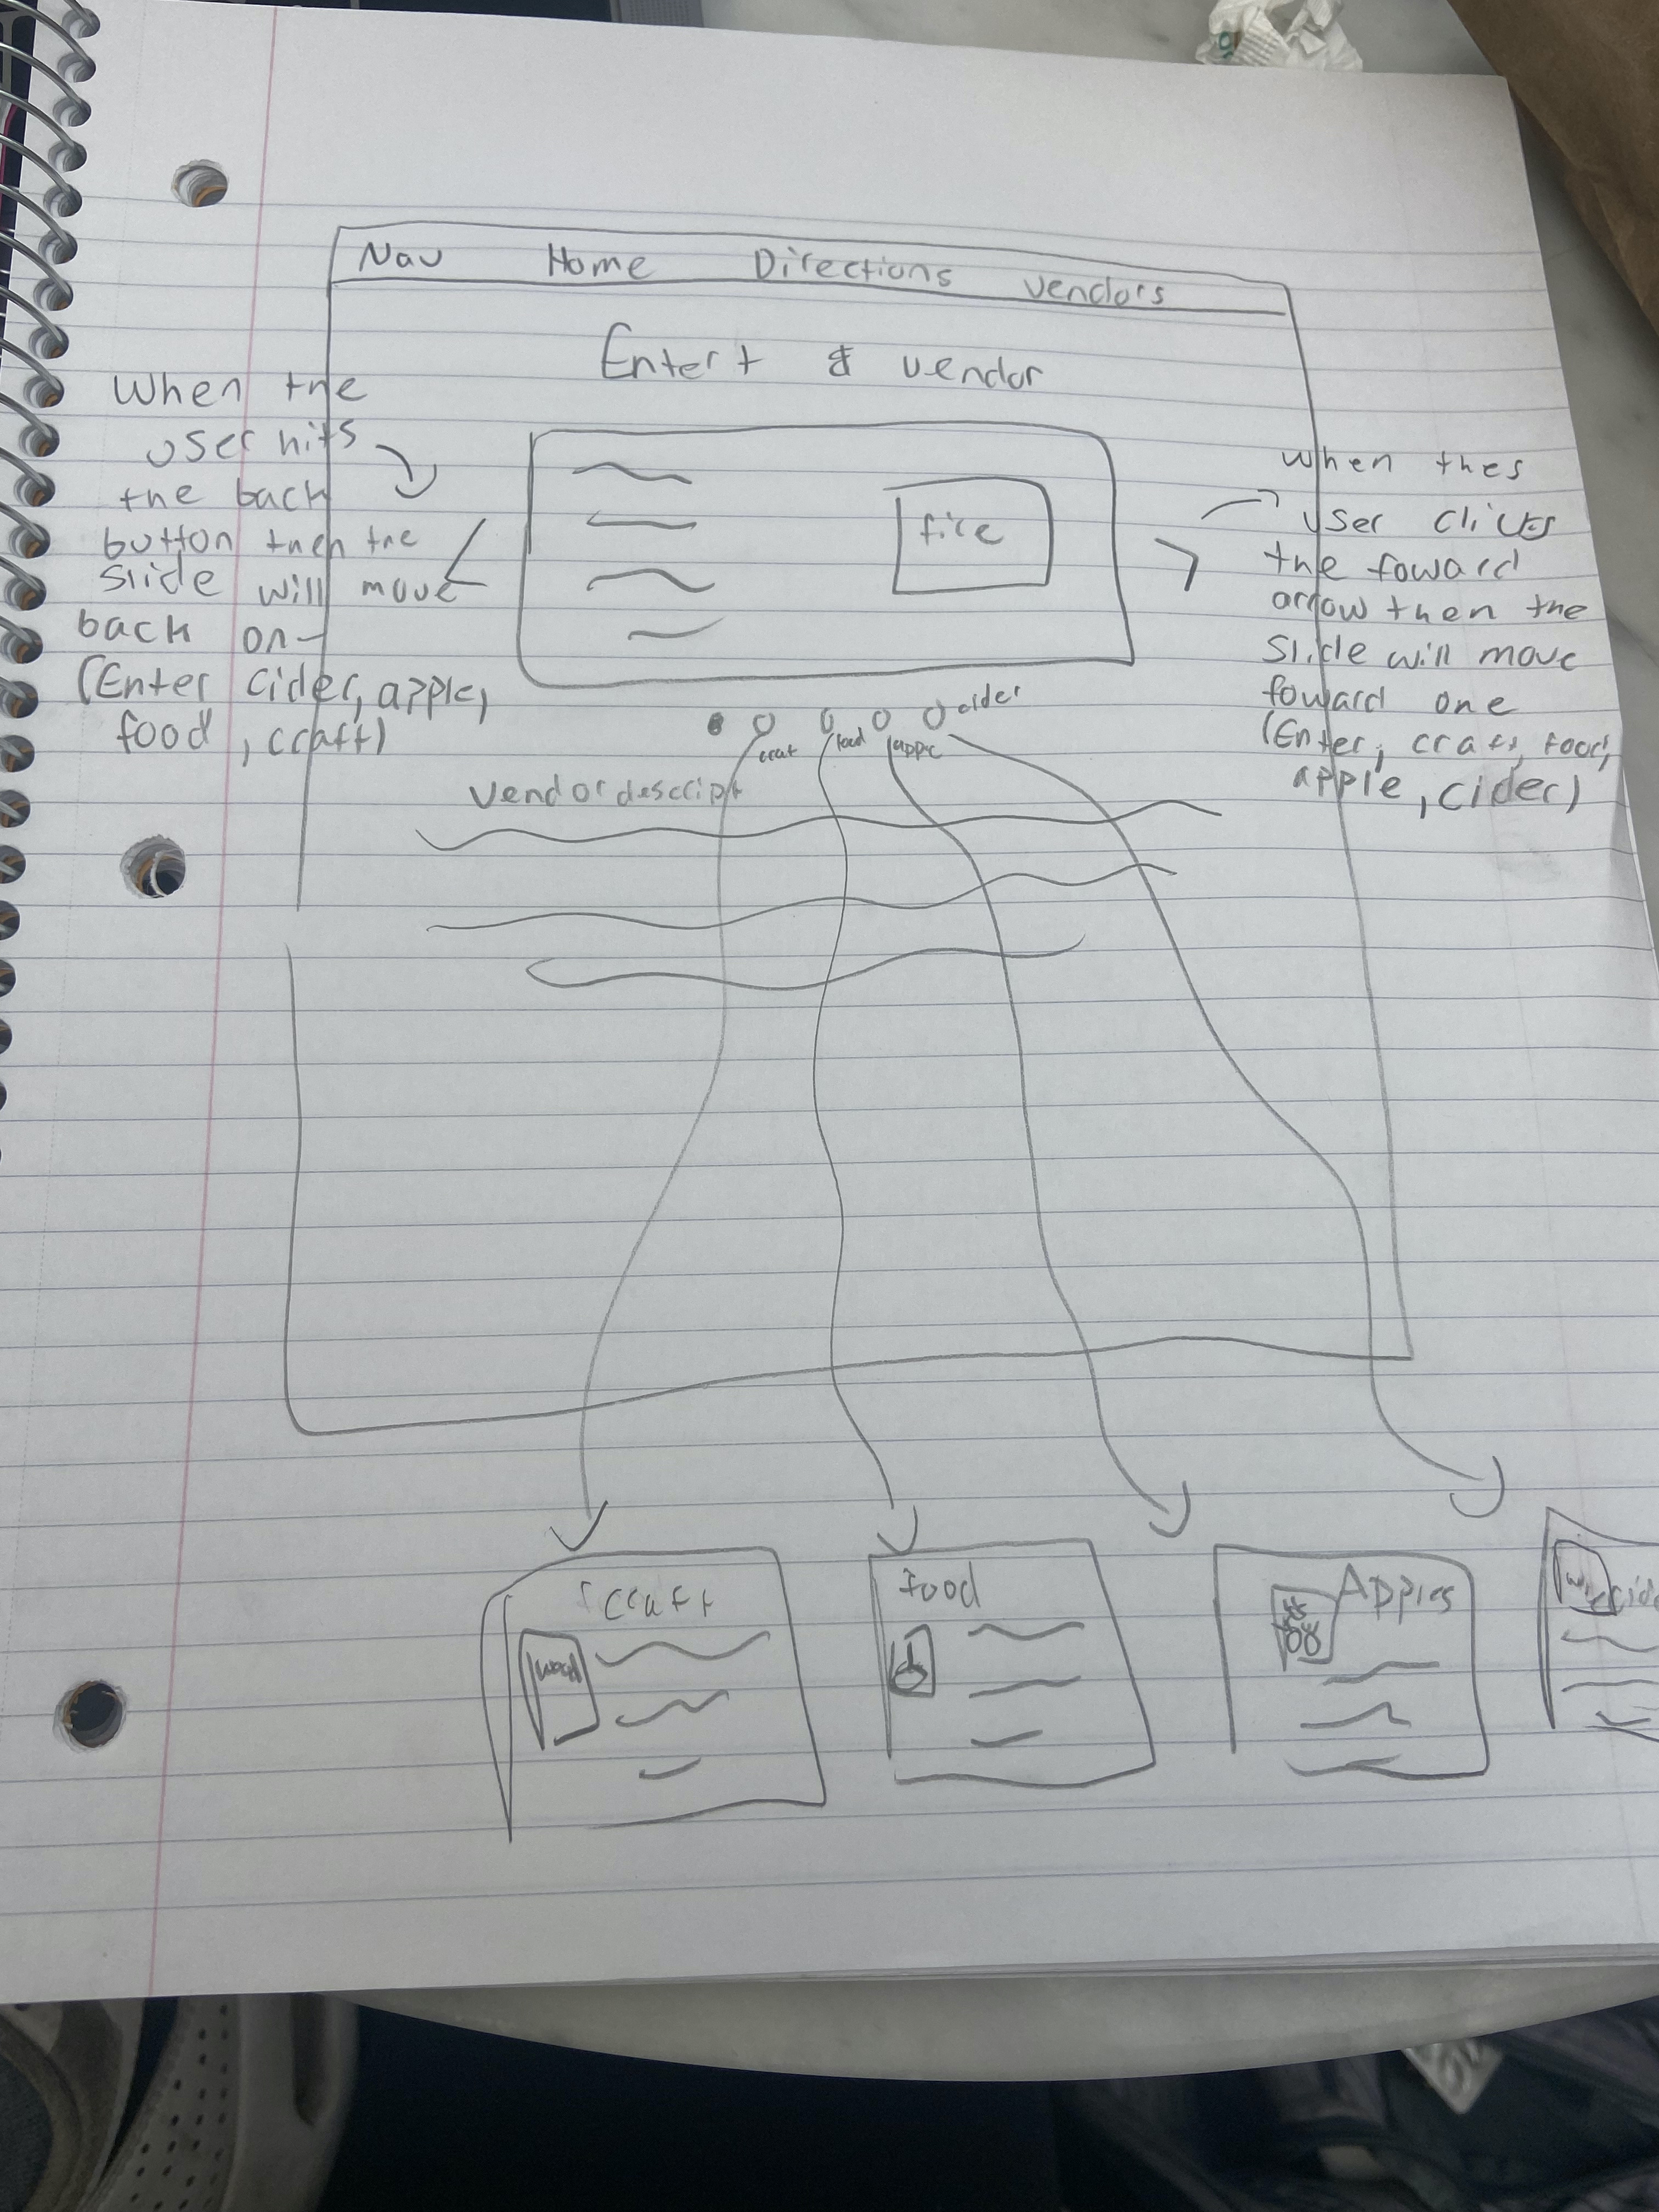 Nav Home Directions vendors
Entert & vendor
When the
user hits
the back
button then the
slide will move
back on-
(Enter cider, apple,
food, craft)
fire
when thes
user clicks
the foward
arrow then the
Slide will move
foward one
(Enter, craft, food,
apple, cider)
craft food apple cider
Vendor descript
craft
wood
food
Apples